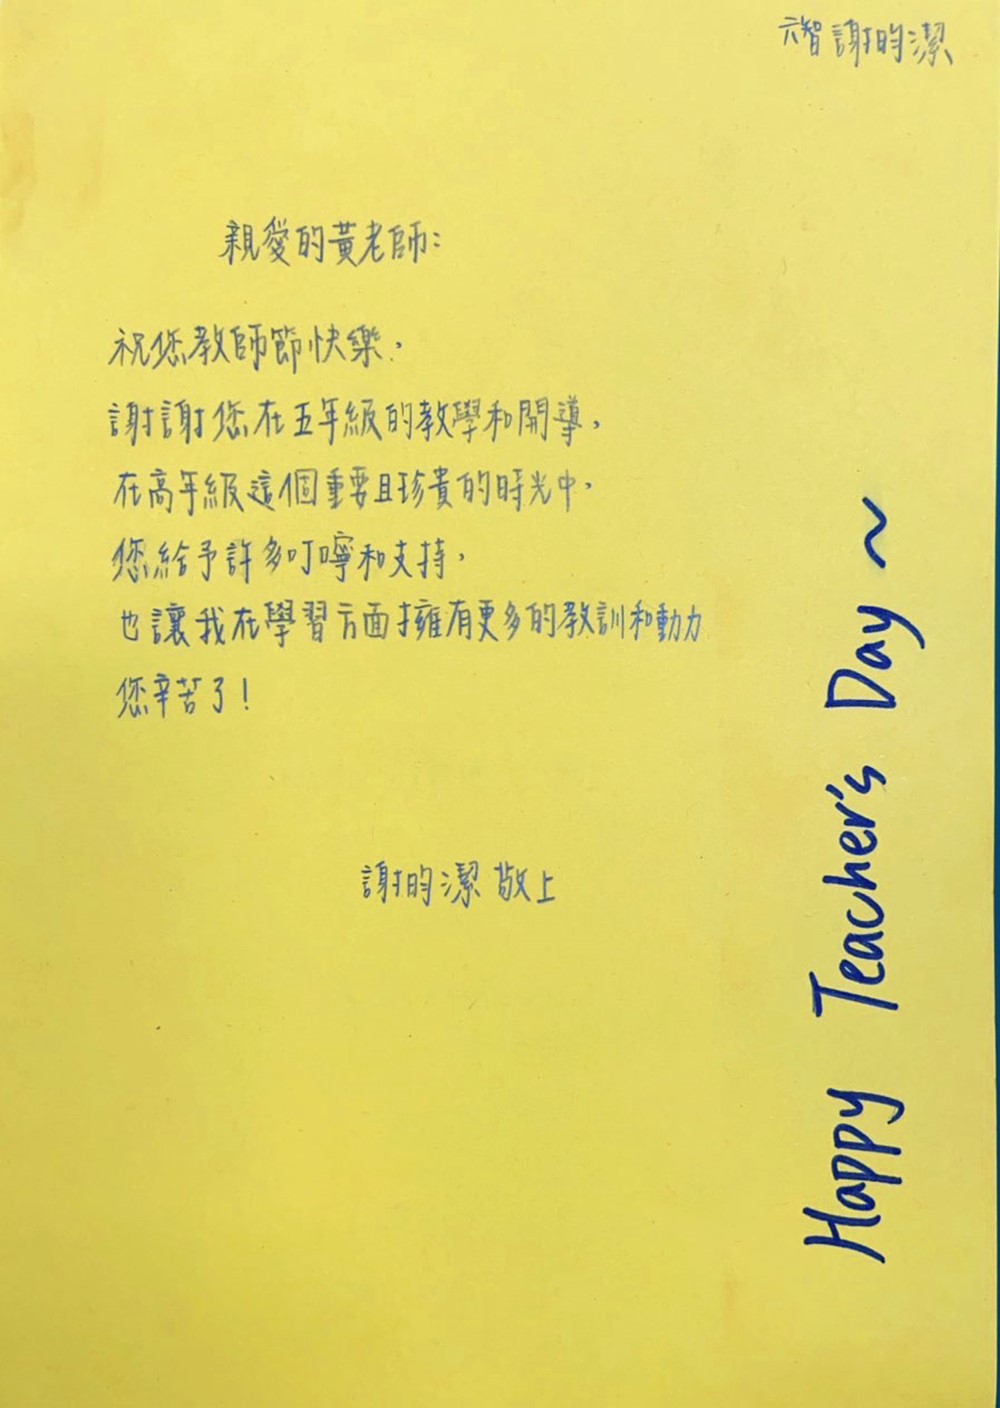 六智 謝昀潔
親愛的黃老師：
祝您教師節快樂，
謝謝您在五年級的教學和開導，
在高年級這個重要且珍貴的時光中，
您給予許多叮嚀和支持，
也讓我在學習方面擁有更多的教訓和動力
您辛苦了！
謝昀潔 敬上
Happy Teacher's Day ~